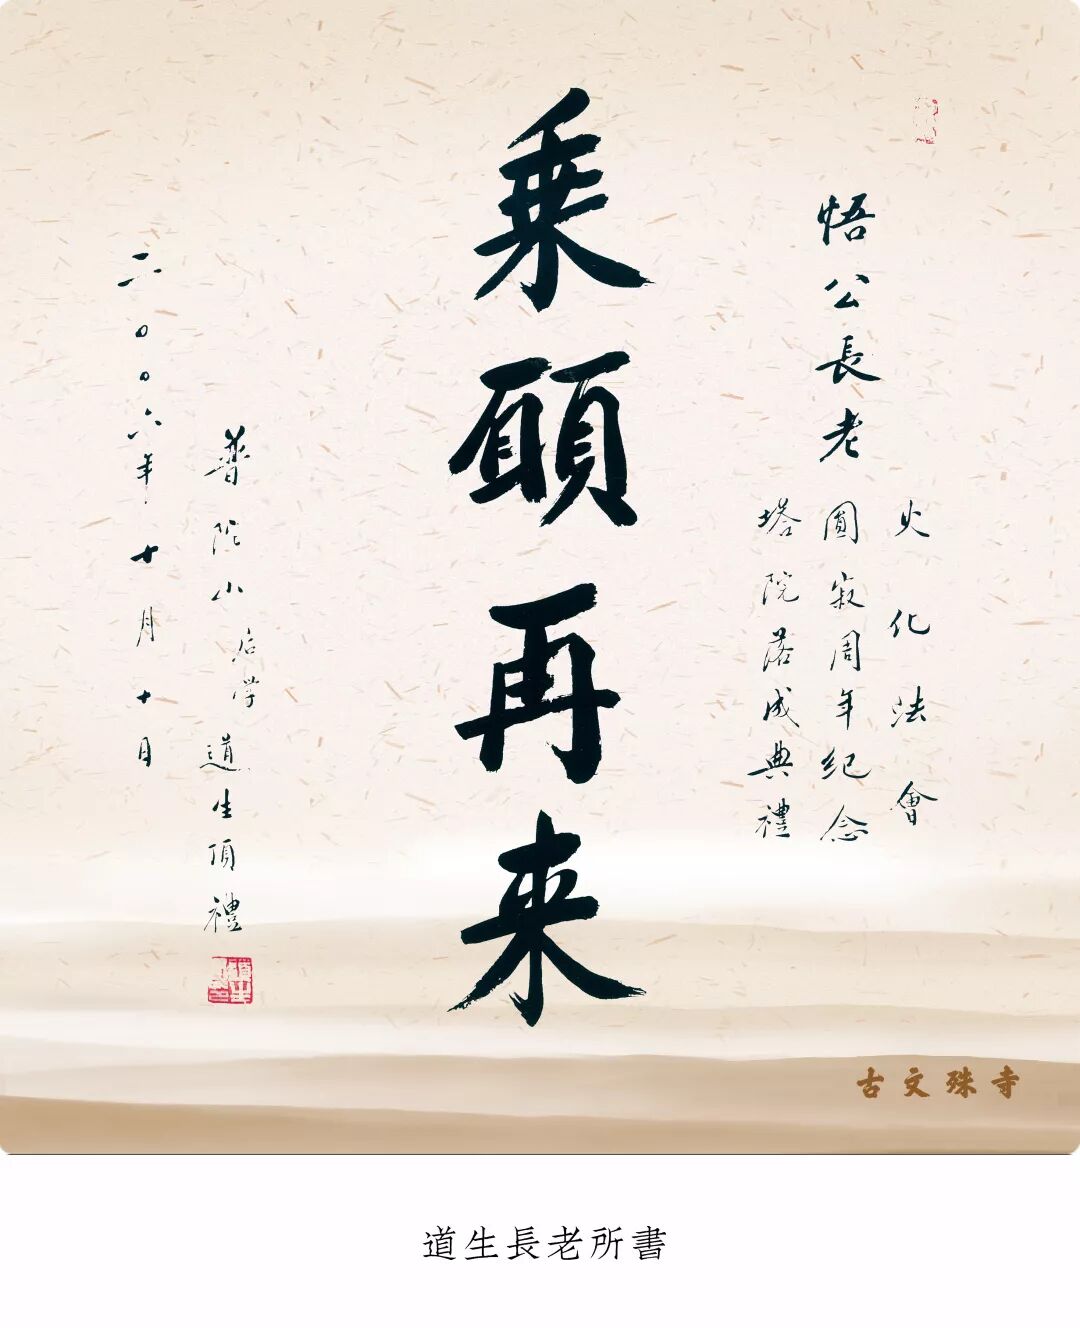 悟公長老
火化法會
圓寂周年紀念
塔院落成典禮
乗願再来
普陀山后学道生頂禮
二〇〇六年十月十日
古文殊寺
道生長老所書